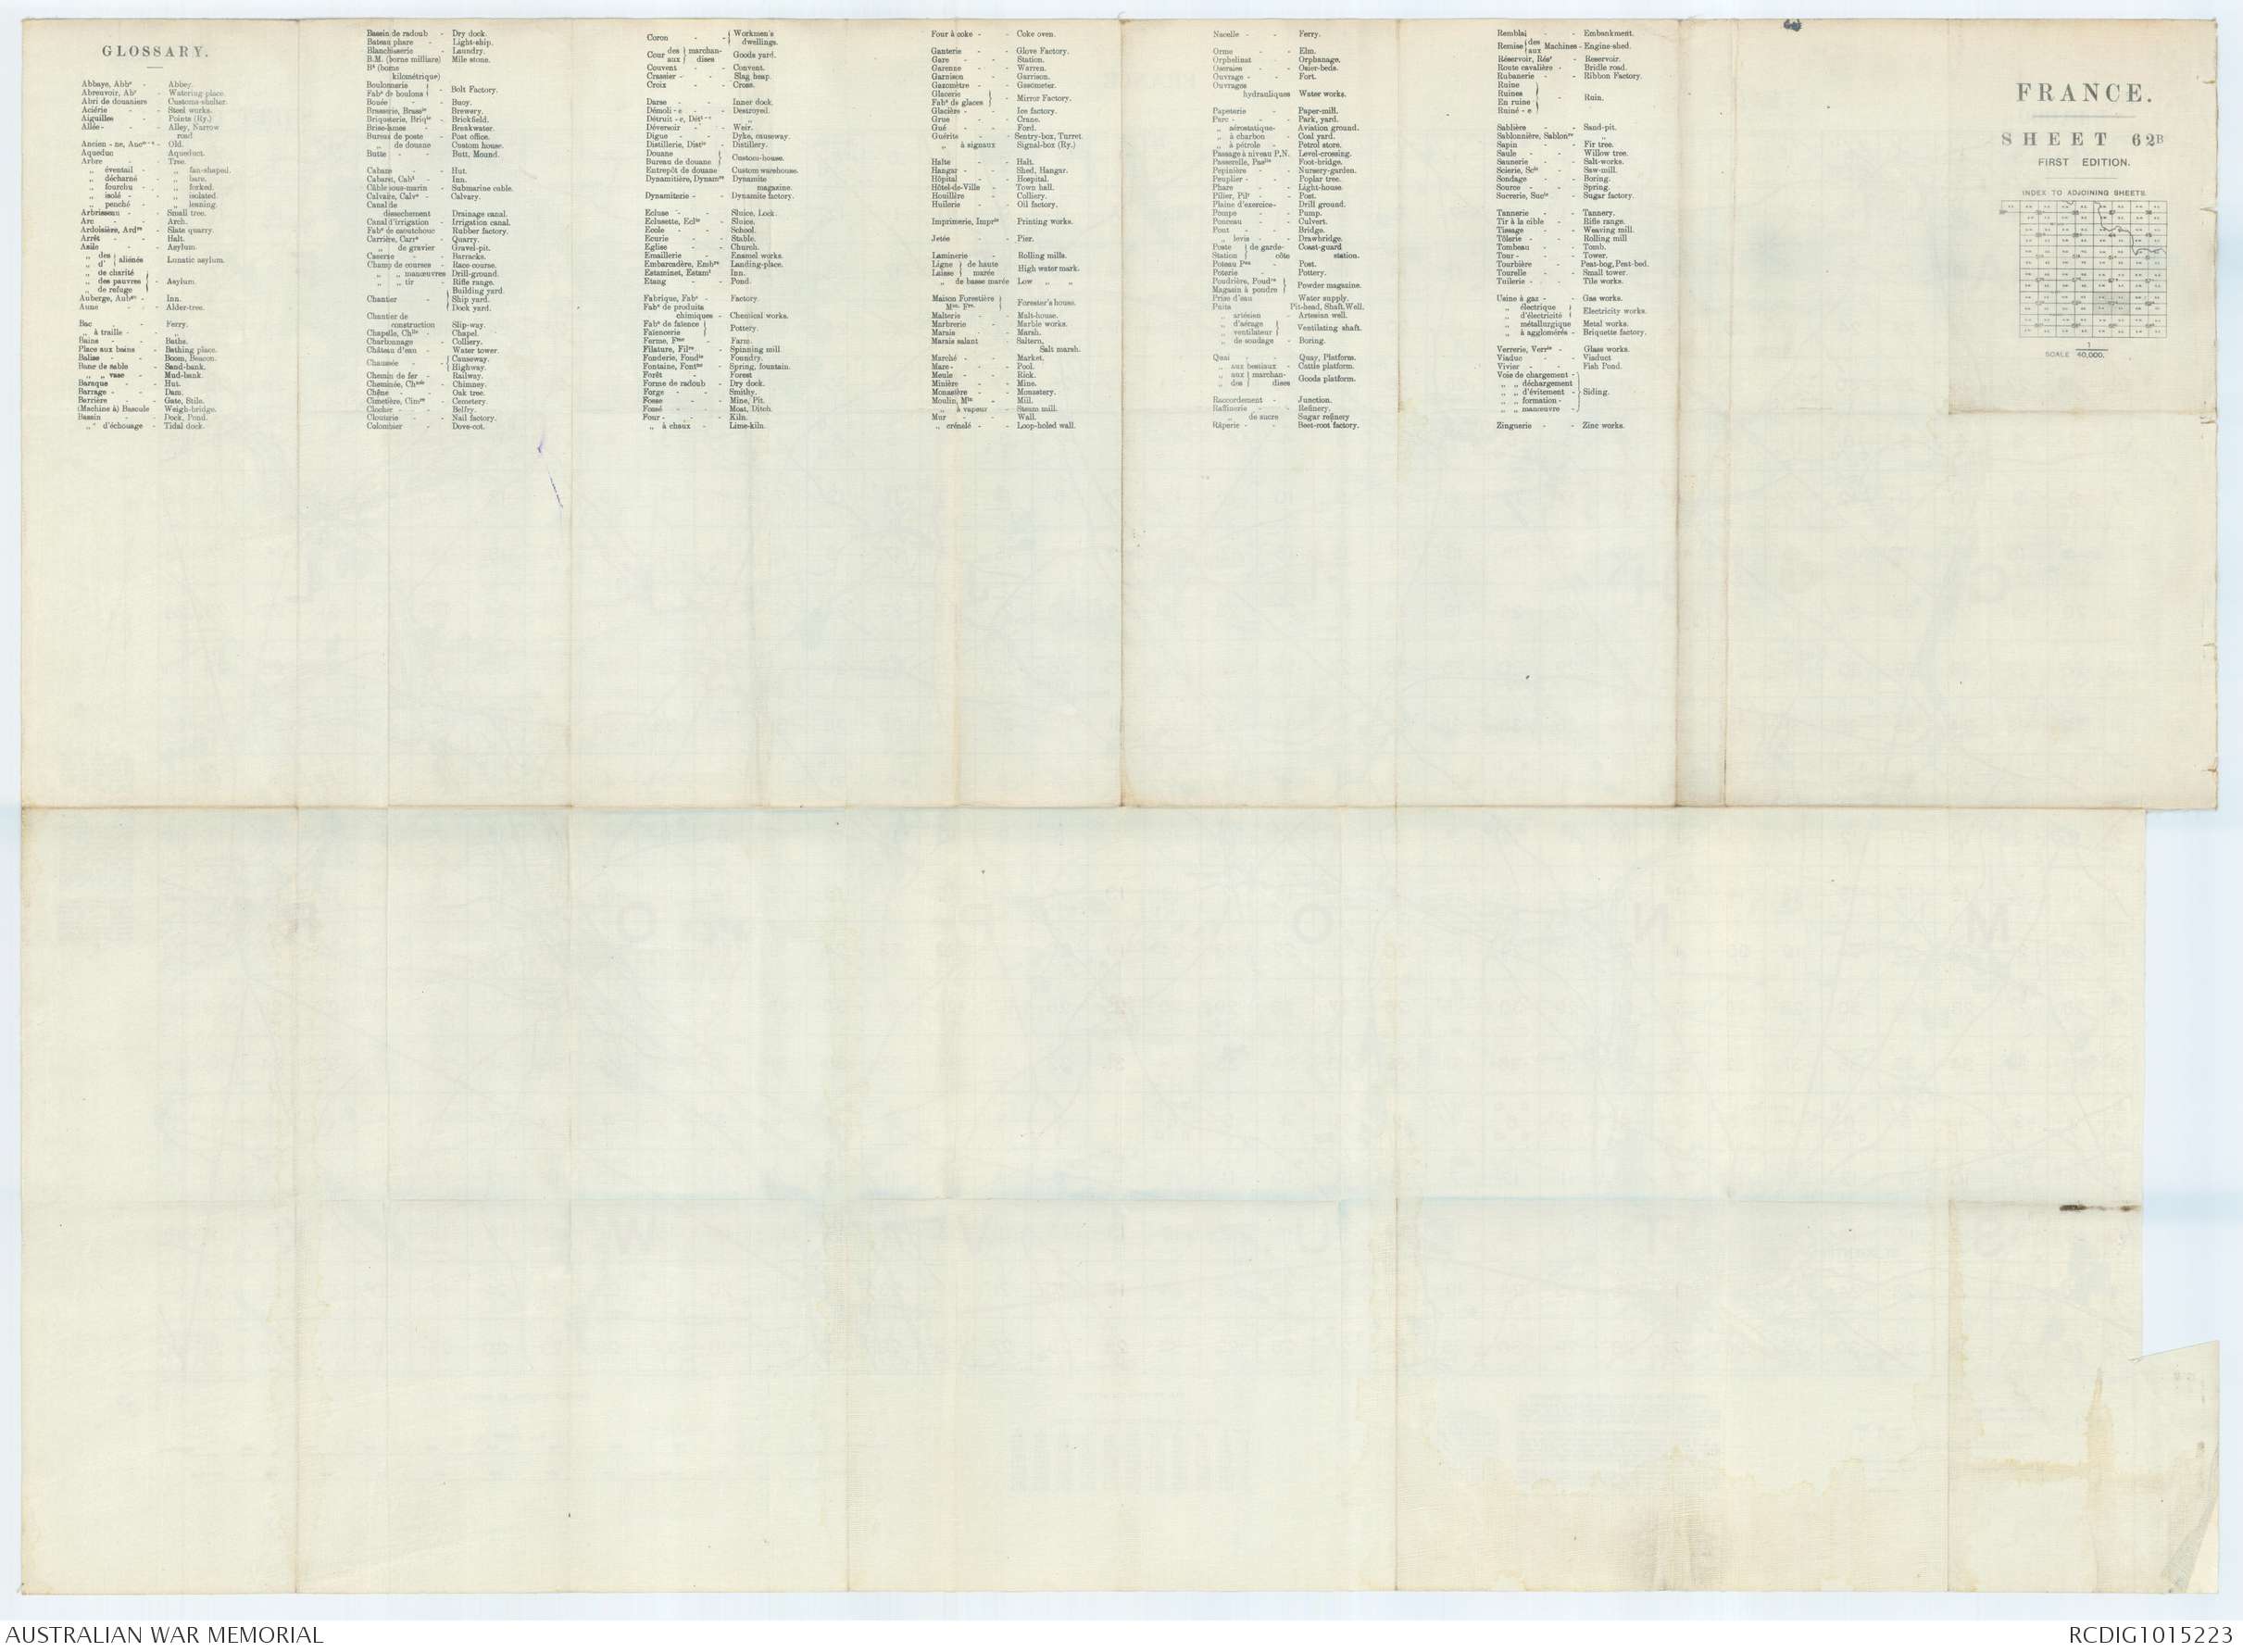 GLOSSARY.
Abbaye, Abbe - Abbey.
Abreuvoir, Abr - Watering-place.
Abri de douaniers - Customs-shelter.
Aciérie - - Steel works.
Aiguilles - Points (Ry.)
Allée - - - Alley, Narrow
road.
Ancien - ne, - Old.
Aqueduc - Aqueduct.
Arbre - - Tree.
„ éventail - „ fan-shaped.
„ décharné - „ bare.
„ fourchu - - „ forked.
„ isolé - - „ isolated.
„ penché - „ leaning.
Arbrisseau - - Small tree.
Arc - - Arch.
Ardoisière, Ardre - Slate quarry.
Arrêt - - Halt.
Asile - - Asylum.
„ des } aliénés Lunatic asylum.
„ d'
„ de charité
„ des pauvres } - Asylum.
„ de refuge
Auberge, Aubge - Inn.
Aune - - - Alder-tree.
Bac „ - Ferry.
„ à traille - - „
Bains - - Baths.
Place aux bains - Bathing place.
Balise - - Boom, Beacon.
Banc de sable - Sand-bank.
„ „ vase - Mud-bank.
Baraque - - Hut.
Barrage - - Dam.
Barrière - - Gate, Stile.
(Machine à) Bascule Weigh-bridge.
Bassin - - Dock, Pond.
„ d'échouage - Tidal dock.
Bassin de radoub - Dry dock.
Bateau phare - Light-ship.
Blanchisserie - Laundry.
B.M. (borne milliare) Mile stone.
Be (borne
kilométrique)
Boulonnerie
Fabe de boulons } - Bolt Factory.
Bouée - - Buoy.
Brasserie, Brassie - Brewery.
Briqueterie, Briqie - Brickfield.
Brise-lames - Breakwater.
Bureau de poste - Post office.
„ de douane Custom house.
Butte - - Butt, Mound.
Cabane - - Hut.
Cabaret, Cabt - Inn.
Câble sous-marin - Submarine cable.
Calvaire, Calve - Calvary.
Canal de
dessèchement Drainage canal.
Canal d'irrigation - Irrigation canal.
Fabe de caoutchouc Rubber factory.
Carrière, Carre - Quarry.
„ de gravier Gravel-pit.
Caserne - - Barracks.
Champ de courses - Race-course.
„ „ manœuvres Drill-ground.
„ „ tir - Rifle range.
Chantier - { Building yard.
Ship yard.
Dock yard.
Chantier de
construction Slip-way.
Chapelle, Chlle - Chapel.
Charbonnage - Colliery.
Château d'eau - Water tower.
Chaussée - - { Causeway.
Highway.
Chemin de fer - Railway.
Cheminée, Chnée - Chimney.
Chêne - - Oak tree.
Cimetière, Cimre - Cemetery.
Clocher - - Belfry.
Clouterie - - Nail factory.
Colombier - Dove-cot.
Coron - - { Workmen's
dwellings.
Cour des } marchan-
aux } dises Goods yard.
Couvent - - Convent.
Crassier - - Slag heap.
Croix - - Cross.
Darse - - Inner dock.
Démoli - e - - Destroyed.
Détruit - e, „
Déversoir - - Weir.
Digue - - Dyke, causeway.
Distillerie, Distie - Distillery.
Douane
Bureau de douane } Custom-house.
Entrepôt de douane Custom warehouse.
Dynamitière, Dynamre Dynamite
magazine.
Dynamiterie - - Dynamite factory.
Ecluse - - Sluice, Lock.
Eclusette, Eclte - Sluice.
Ecole - - School.
Ecurie - - Stable.
Eglise - - Church.
Emaillerie - Enamel works.
Embarcadère, Embre Landing-place.
Estaminet, Estamt - Inn.
Etang - - Pond.
Fabrique, Fabe - Factory.
Fabe de produits
chimiques - Chemical works.
Fabe de faïence
Faïencerie } Pottery.
Ferme, Fme - Farm.
Filature, Filre - Spinning mill.
Fonderie, Fondie - Foundry.
Fontaine, Fontne - Spring, fountain.
Forêt - - Forest
Forme de radoub - Dry dock.
Forge - - Smithy.
Fosse - - Mine, Pit.
Fossé - - Moat, Ditch.
Four - - Kiln.
„ à chaux - Lime-kiln.
Four à coke - - Coke oven.
Ganterie - - Glove Factory.
Gare - - Station.
Garenne - - Warren.
Garnison - Garrison.
Gazomètre - - Gasometer.
Glacerie
Fabe de glaces } - Mirror Factory.
Glacière - - Ice factory.
Grue - - Crane.
Gué - - Ford.
Guérite - - Sentry-box, Turret.
„ à signaux Signal-box (Ry.)
Halte - - Halt.
Hangar - - Shed, Hangar.
Hôpital - - Hospital.
Hôtel-de-Ville - Town hall.
Houillère - - Colliery.
Huilerie - - Oil factory.
Imprimerie, Imprie - Printing works.
Jetée - - Pier.
Laminerie - Rolling mills.
Ligne } de haute
Laisse } marée High water mark.
„ de basse marée Low „ „
Maison Forestière
Mon Fre } Forester's house.
Malterie - - Malt-house.
Marbrerie - Marble works.
Marais - - Marsh.
Marais salant - Saltern,
Salt marsh.
Marché - - Market.
Mare - - Pool.
Meule - - Rick.
Minière - - Mine.
Monastère - - Monastery.
Moulin, Mln - Mill.
„ à vapeur - Steam mill.
Mur - - Wall.
„ crénelé - - Loop-holed wall.
Nacelle - - Ferry.
Orme - - Elm.
Orphelinat - Orphanage.
Oseraies - - Osier-beds.
Ouvrage - - Fort.
Ouvrages
hydrauliques Water works.
Papeterie - Paper-mill.
Parc - - Park, yard.
„ aérostatique- Aviation ground.
„ à charbon - Coal yard.
„ à pétrole - Petrol store.
Passage à niveau P.N. Level-crossing.
Passerelle, Paslle - Foot-bridge.
Pépinière - Nursery-garden.
Peuplier - - Poplar tree.
Phare - - Light-house.
Pilier, Pilr - Post.
Plaine d'exercice- Drill ground.
Pompe - - Pump.
Ponceau - - Culvert.
Pont - - Bridge.
„ levis - - Drawbridge.
Poste } de garde- Coast-guard
Station } côte station.
Poteau Pau - Post.
Poterie - - Pottery.
Poudrière, Poudre
Magasin à poudre } Powder magazine.
Prise d'eau Water supply.
Puits Pit-head, Shaft, Well.
„ artésien - Artesian well.
„ d'aérage
„ ventilateur } Ventilating shaft.
„ de sondage - Boring.
Quai - - Quay, Platform.
„ aux bestiaux - Cattle platform.
„ aux } marchan-
„ des } dises Goods platform.
Raccordement - Junction.
Raffinerie - - Refinery.
„ de sucre Sugar refinery
Râperie - - Beet-root factory.
Remblai - - Embankment.
Remise { des
aux Machines - Engine-shed.
Réservoir, Résr - Reservoir.
Route cavalière - Bridle road.
Rubanerie - - Ribbon Factory.
Ruine
Ruines
En ruine } - Ruin.
Ruiné - e
Sablière - - Sand-pit.
Sablonnière, Sablonre „
Sapin - - Fir tree.
Saule - - Willow tree.
Saunerie - Salt-works.
Scierie, Scie - Saw-mill.
Sondage - - Boring.
Source - - Spring.
Sucrerie, Sucie - Sugar factory.
Tannerie - - Tannery.
Tir à la cible - Rifle range.
Tissage - - Weaving mill.
Tôlerie - - Rolling mill
Tombeau - - Tomb.
Tour - - Tower.
Tourbière - Peat-bog, Peat-bed.
Tourelle - - Small tower.
Tuilerie - - Tile works.
Usine à gaz - - Gas works.
„ électrique
„ d'électricité } Electricity works.
„ métallurgique Metal works.
„ à agglomérés - Briquette factory.
Verrerie, Verrie - Glass works.
Viaduc - - Viaduct
Vivier - - Fish Pond.
Voie de chargement -
„ „ déchargement
„ „ d'évitement - } Siding.
„ „ formation -
„ „ manœuvre -
Zinguerie - - Zinc works.
FRANCE.
SHEET 62B
FIRST EDITION.
INDEX TO ADJOINING SHEETS.
SCALE 1/40,000.
AUSTRALIAN WAR MEMORIAL
RCDIG1015223